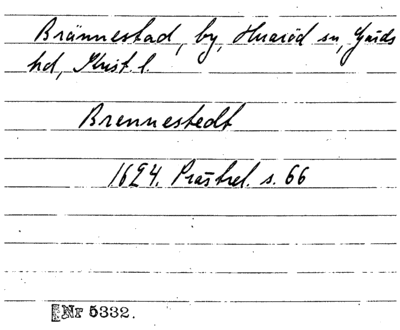 Brännestad, by, Huaröd sn, Gärds
hd, Krist. l.
Brennestedt
1624. Prästrel. s. 66
Nr 5332.